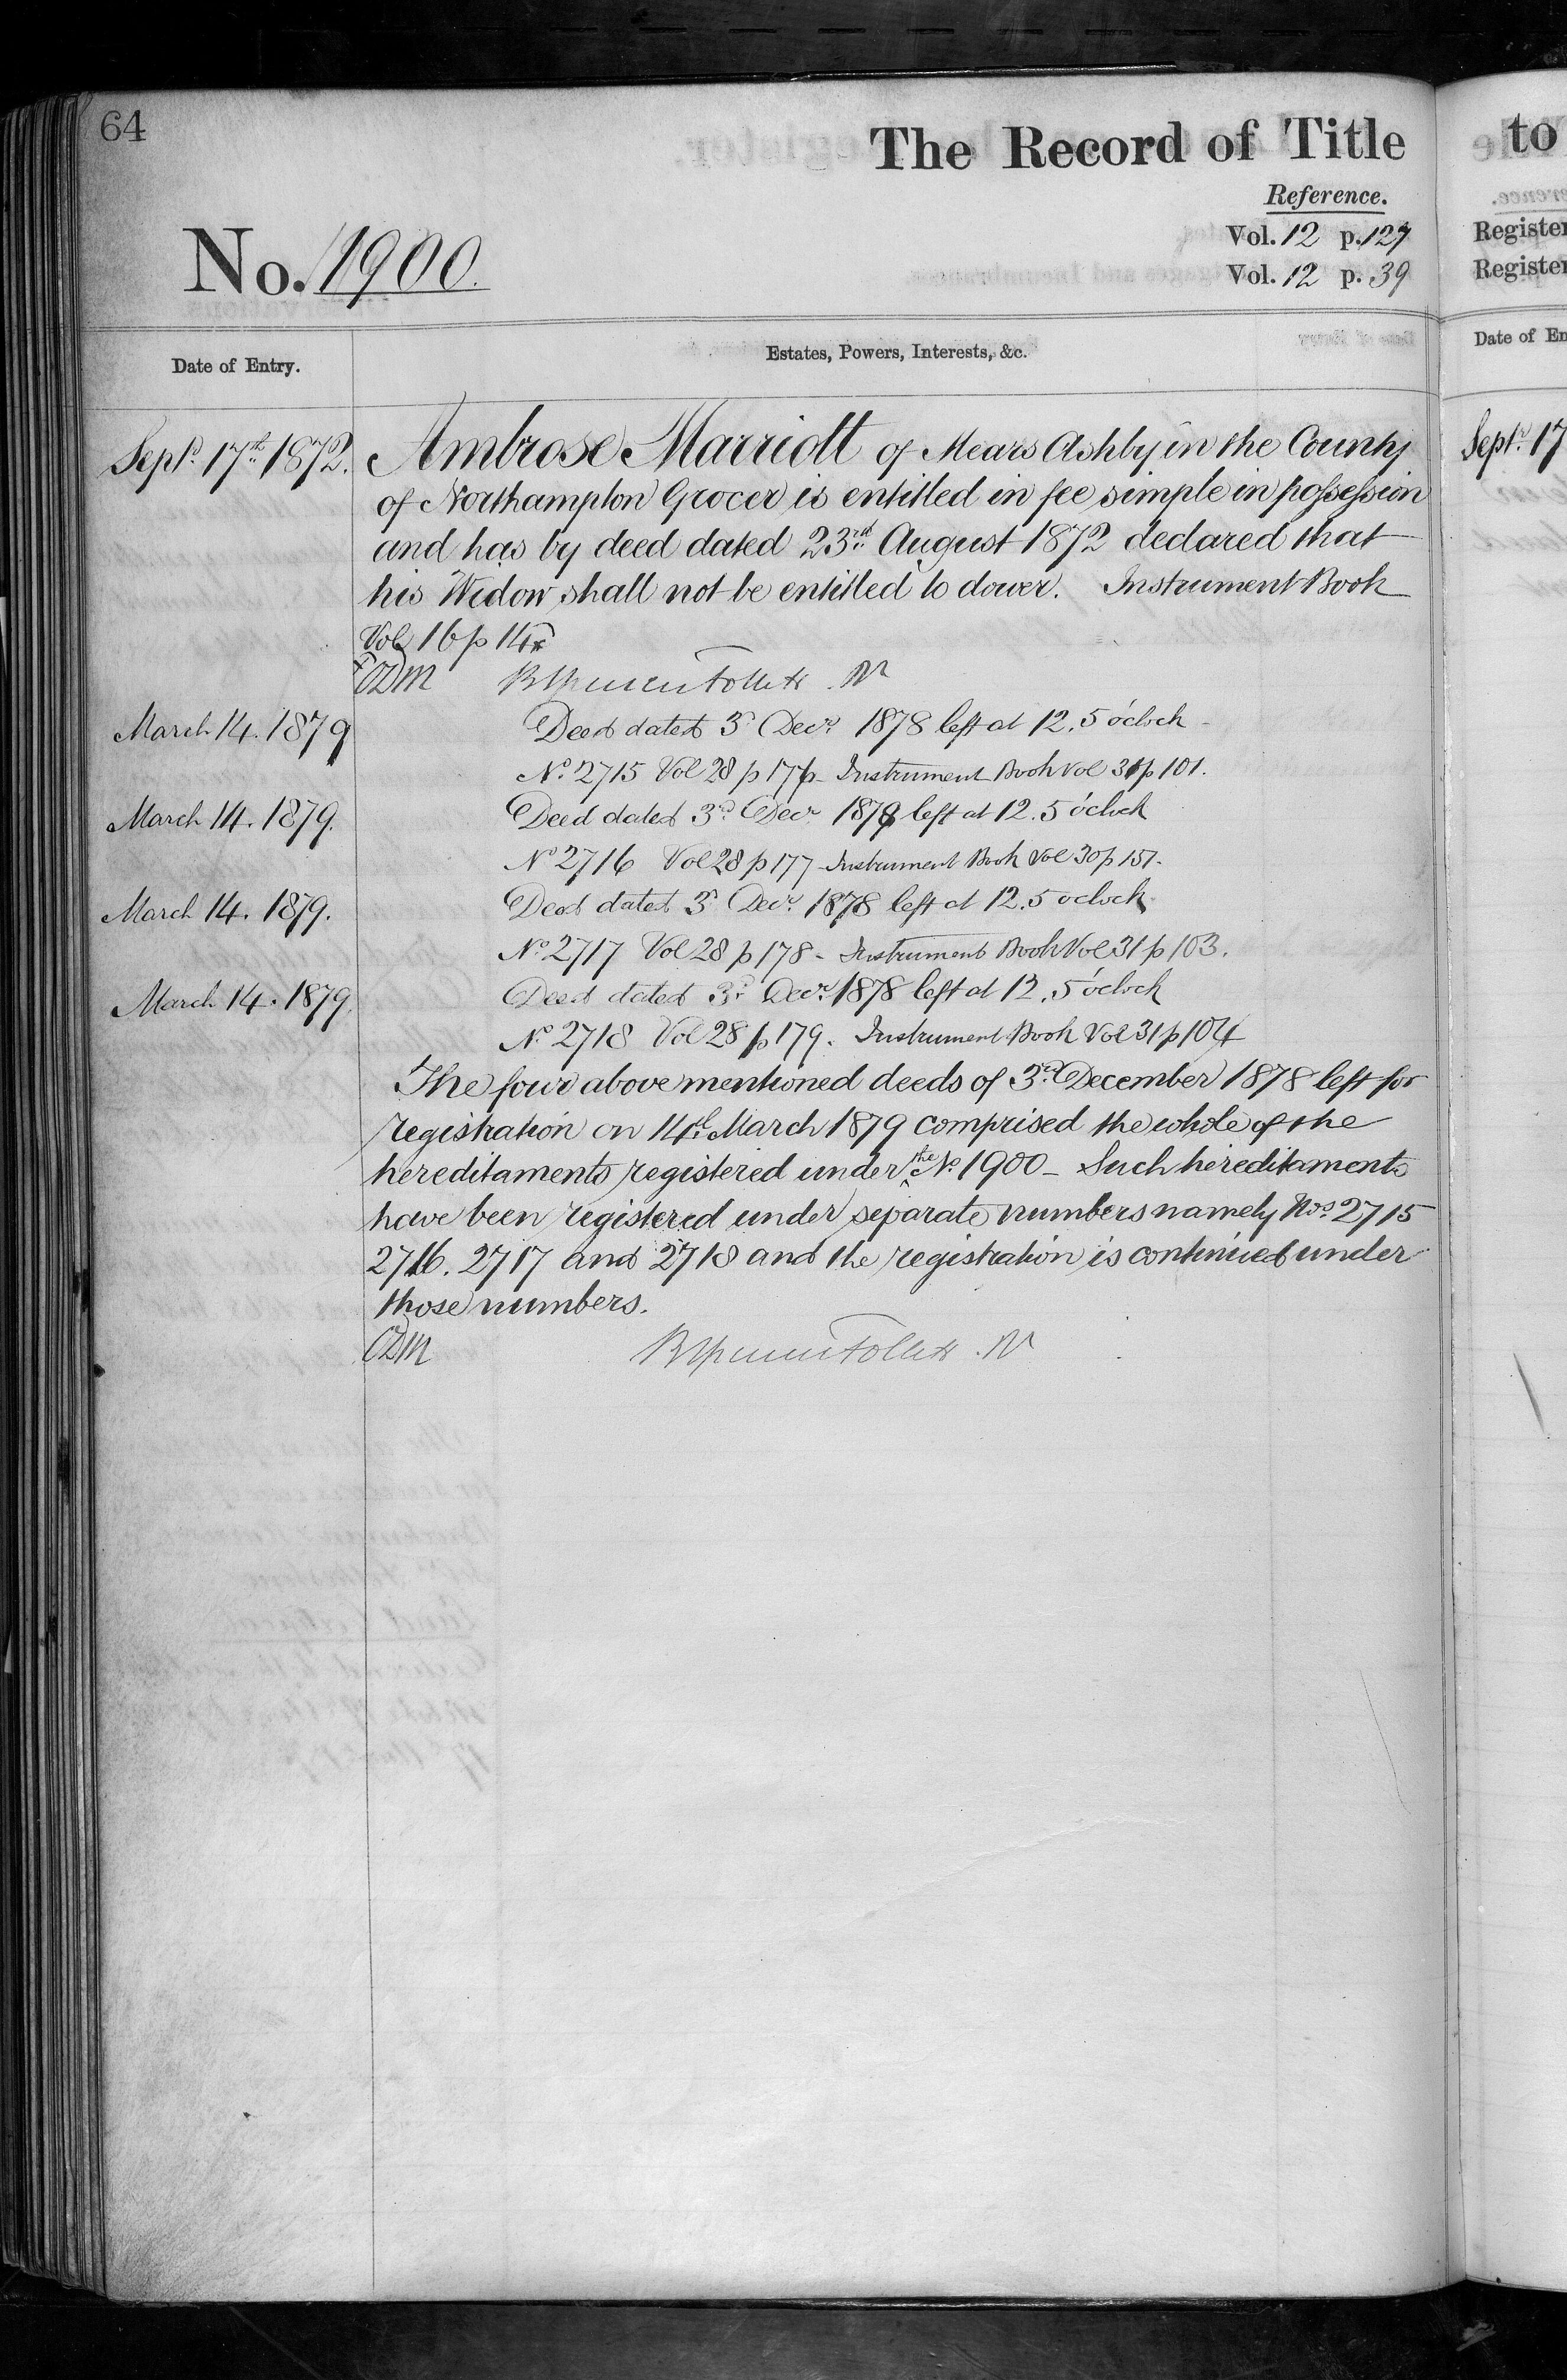 64
The Record of Title
Reference.
No. 1900.
Vol. 12 p. 127
Vol. 12 p. 39
Date of Entry.
Estates, Powers, Interests, &c.
Septr. 17th 1872.
Ambrose Marriott of Mears Ashby in the County
of Northampton Grocer is entitled in fee simple in possession
and has by deed dated 23rd August 1872 declared that
his Widow shall not be entitled to dower. Instrument Book
Vol 16 p 14
CDM
March 14. 1879
Deed dated 3d Decr. 1878 left at 12.5 o'clock
No. 2715 Vol 28 p 177- Instrument Book Vol 31 p 101.
March 14. 1879.
Deed dated 3d Decr 1878 left at 12.5 o'clock
No 2716 Vol 28 p 177- Instrument Book Vol 30 p 151-
March 14. 1879.
Deed dated 3d Decr. 1878 left at 12.5 oclock
No. 2717 Vol 28 p 178- Instrument Book Vol 31 p 103.
March 14. 1879.
Deed dated 3d. Decr. 1878 left at 12.5 o'clock
No. 2718 Vol 28 p 179. Instrument Book Vol 31 p 104
The four above mentioned deeds of 3rd December 1878 left for
registration on 14th March 1879 comprised the whole of the
hereditaments registered under the No. 1900- Such hereditaments
have been registered under separate numbers namely Nos. 2715
2716. 2717 and 2718 and the registration is continued under
those numbers.
CDM
to
Register
Register
Date of En
Septr. 17